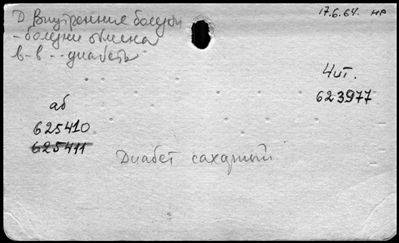 Д. Внутренние болезни
17.6.64. нр
- болезни обмена
в-в -- диабеты
Чит.
623977
аб
625410
625411
Диабет сахарный